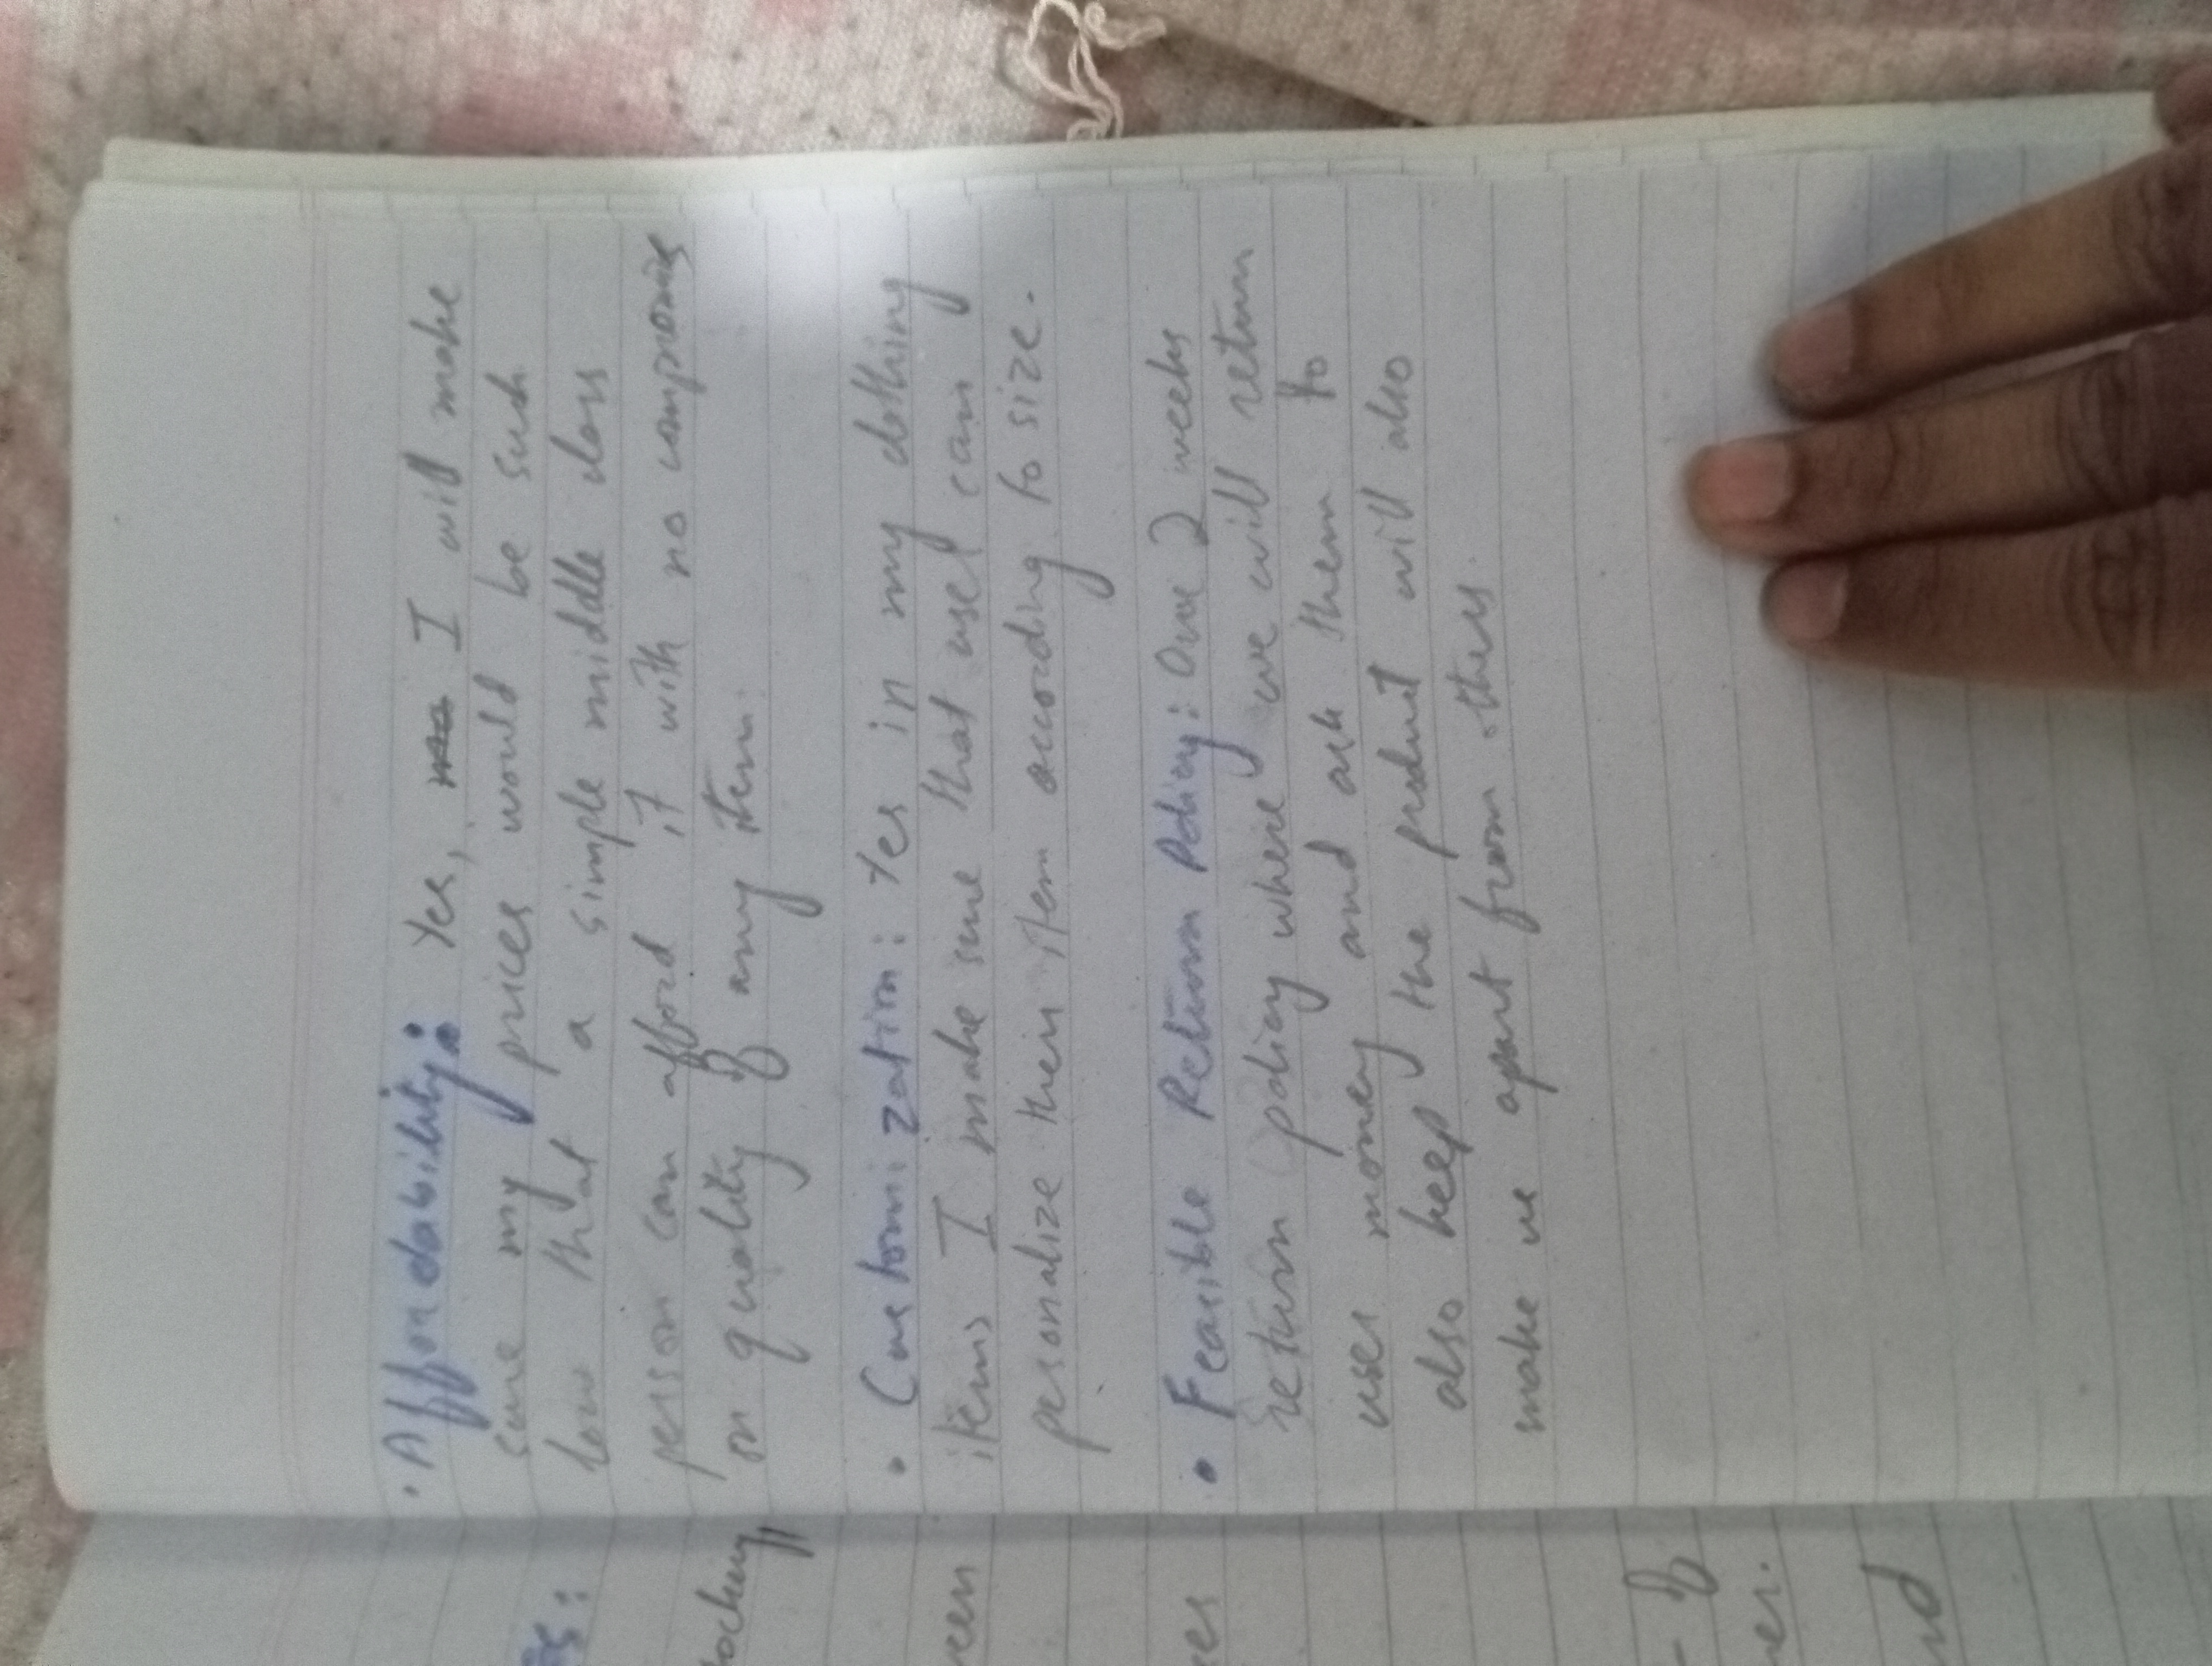 · Affordability: Yes, I will make
sure my prices would be such
low that a simple middle class
person can afford it with no compromise
on quality of any item.
• Customization: Yes in my clothing
items I make sure that user can
pesonalize their item according to size.
• Feasible Return Policy: Our 2 weeks
return policy where we will return
user money and ask them to
also keep the product will also
make us apart from others.